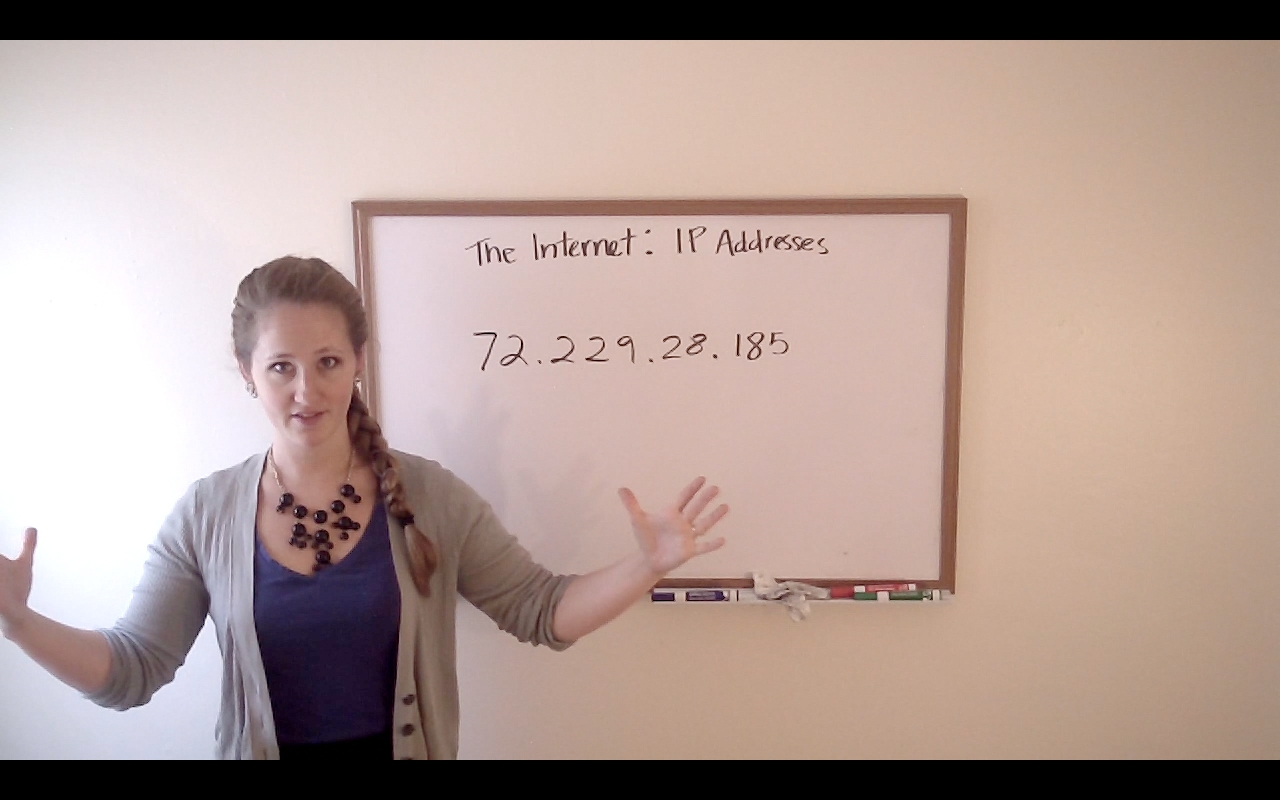 The Internet: IP Addresses
72.229.28.185